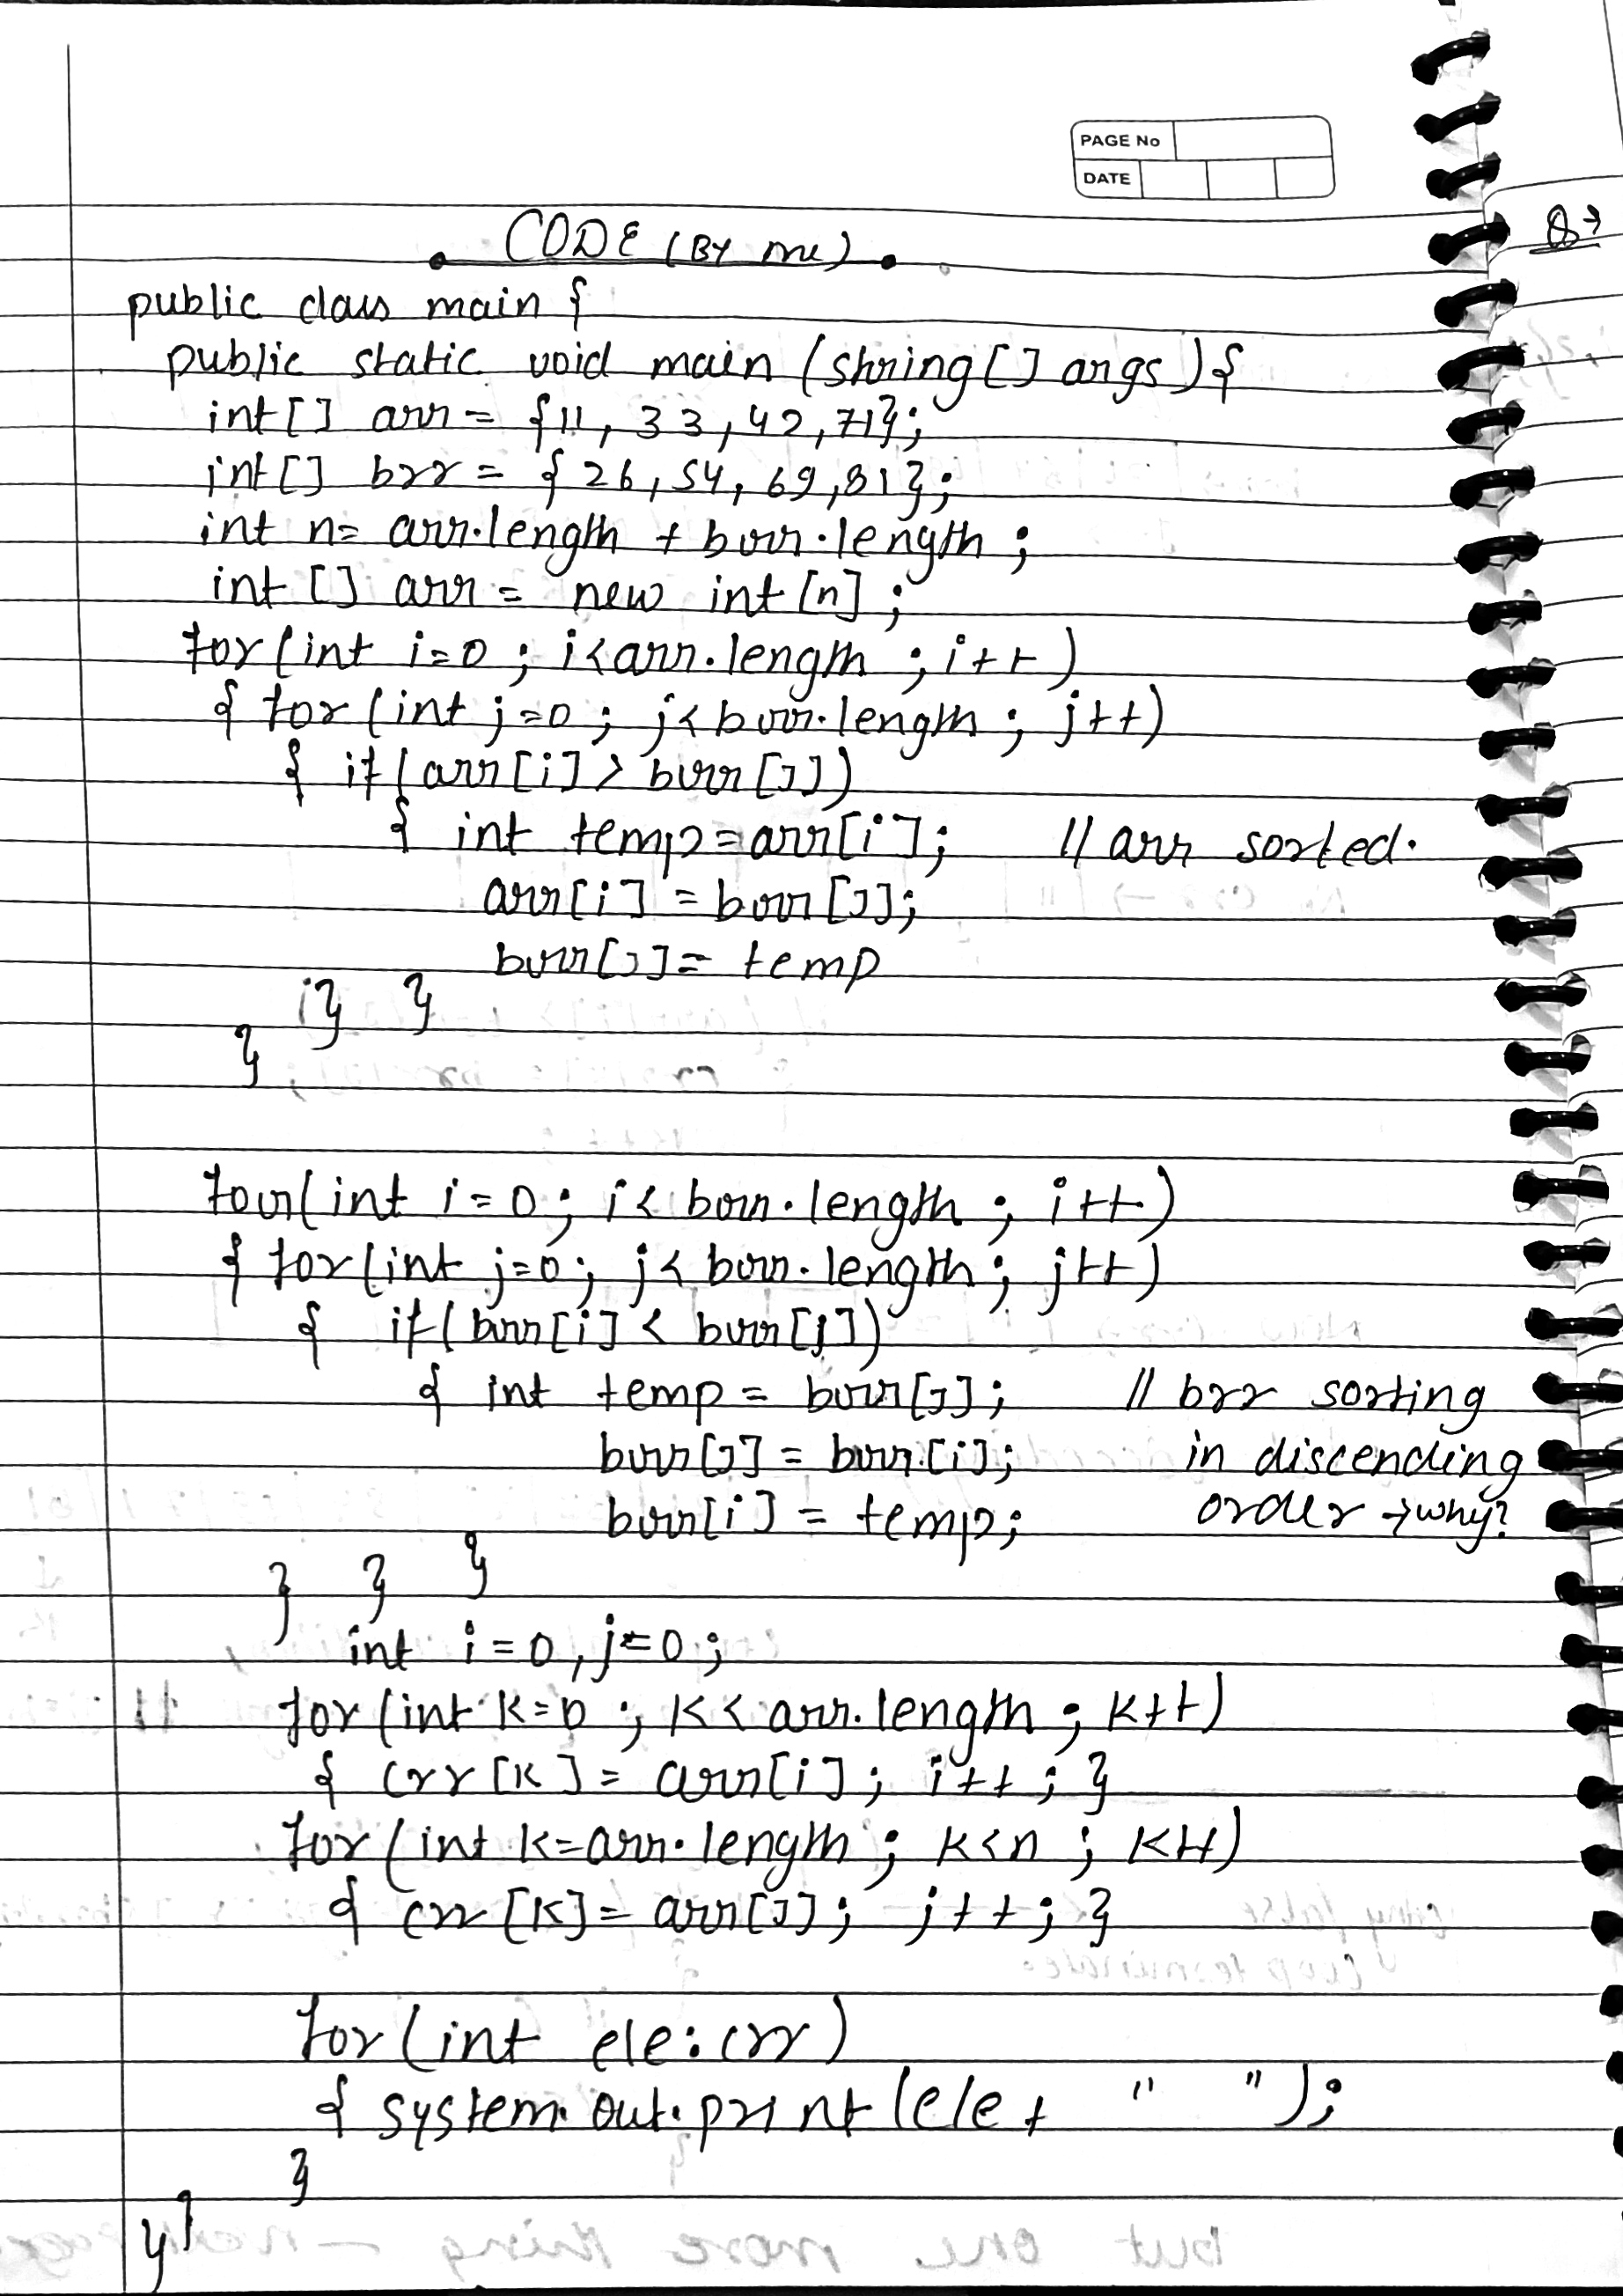 PAGE No
DATE
Q→
CODE (BY me)
public class main {
public static void main (string [] args) {
int [] arr = {11, 33, 42, 71};
int [] brr = {26, 54, 69, 81};
int n = arr.length + brr.length ;
int [] arr = new int [n] ;
for (int i=0 ; i<arr.length ; i++)
{ for (int j=0 ; j<brr.length ; j++)
{ if (arr[i] > brr[j])
{ int temp = arr[i]; // arr sorted.
arr[i] = brr[j];
brr[j] = temp
} }
}
for(int i=0 ; i< brr.length ; i++)
{ for(int j=0; j< brr.length ; j++)
{ if(brr[i] < brr[j])
{ int temp = brr[j]; // brr sorting
brr[j] = brr[i]; in discending
brr[i] = temp; order → why?
} } }
int i=0, j=0 ;
for (int k=0 ; k< arr.length ; k++)
{ crr[k] = arr[i]; i++ ; }
for (int k=arr.length ; k<n ; k++)
{ crr [k] = arr[j] ; j++ ; }
for (int ele : crr)
{ system.out.print (ele + " ");
}
} }